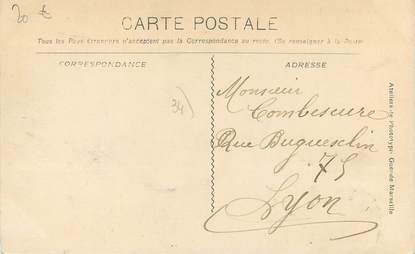 20 €
CARTE POSTALE
Tous les Pays étrangers n'acceptent pas la Correspondance au recto. (Se renseigner à la Poste)
CORRESPONDANCE
ADRESSE
34)
Monsieur
Combescure
Rue Duguesclin
75
Lyon
Ateliers de Phototypie Guende Marseille